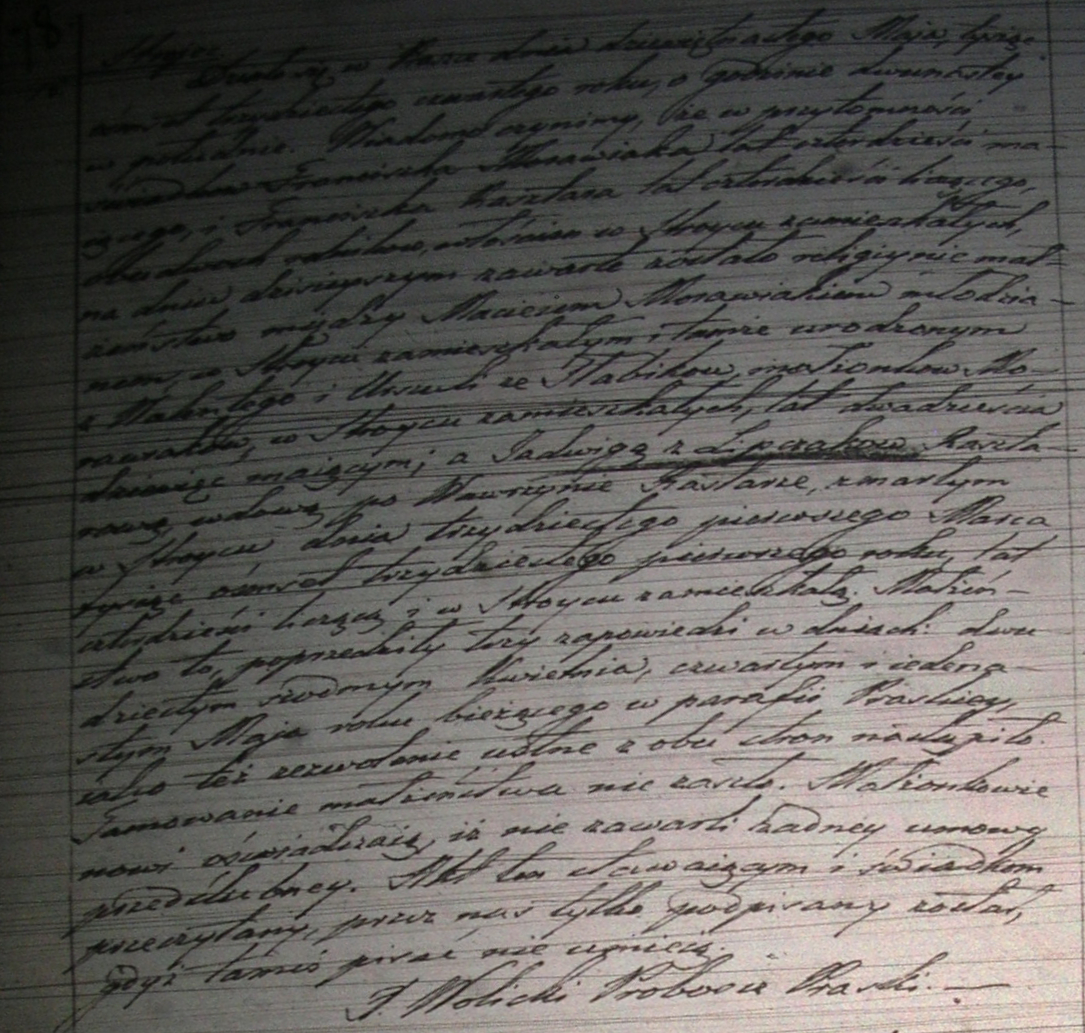 18
Stroyec
Działo się w Prasce dnia dziewiętnastego Maja, tysiąc
ośmset trzydziestego czwartego roku, o godzinie dwunastey
w południe. Wiadomo czynimy, że w przytomności
świadków Franciszka Morawiaka lat czterdzieści ma-
iącego, i Franciszka Kasztara lat czterdzieści liczącego,
obudwóch rolników, włościan w Stroycu zamieszkałych,
na dniu dzisieyszym zawarte zostało religiyne mał-
żeństwo między Macieiem Morawiakiem młodzia-
nem, w Stroycu zamieszkałym i tamże urodzonym
z Walentego i Urszuli ze Stabików małżonków Mo-
rawiaków, w Stroycu zamieszkałych, lat dwadzieścia
dziewięć maiącym; a Jadwigą z Lipczaków Kaszta-
rową wdową po Wawrzynie Kasztarze, zmarłym
w Stroycu dnia trzydziestego pierwszego Marca
tysiąc ośmset trzydziestego pierwszego roku, lat
czterdzieści liczącą i w Stroycu zamieszkałą. Małżeń-
stwo to, poprzedziły trzy zapowiedzi w dniach: dwu
dziestym siódmym Kwietnia, czwartym i iedena-
stym Maja roku bieżącego w parafii Praskiey,
iako też zezwolenie ustne z obu stron nastąpiło.
Tamowanie małżeństwa nie zaszło. Małżonkowie
nowi oświadczaią, iż nie zawarli żadney umowy
przedślubney. Akt ten stawaiącym i świadkom
przeczytany, przez nas tylko podpisany został,
gdyż tamci pisać nie umieią.
J. Wolicki Proboszcz Praski.